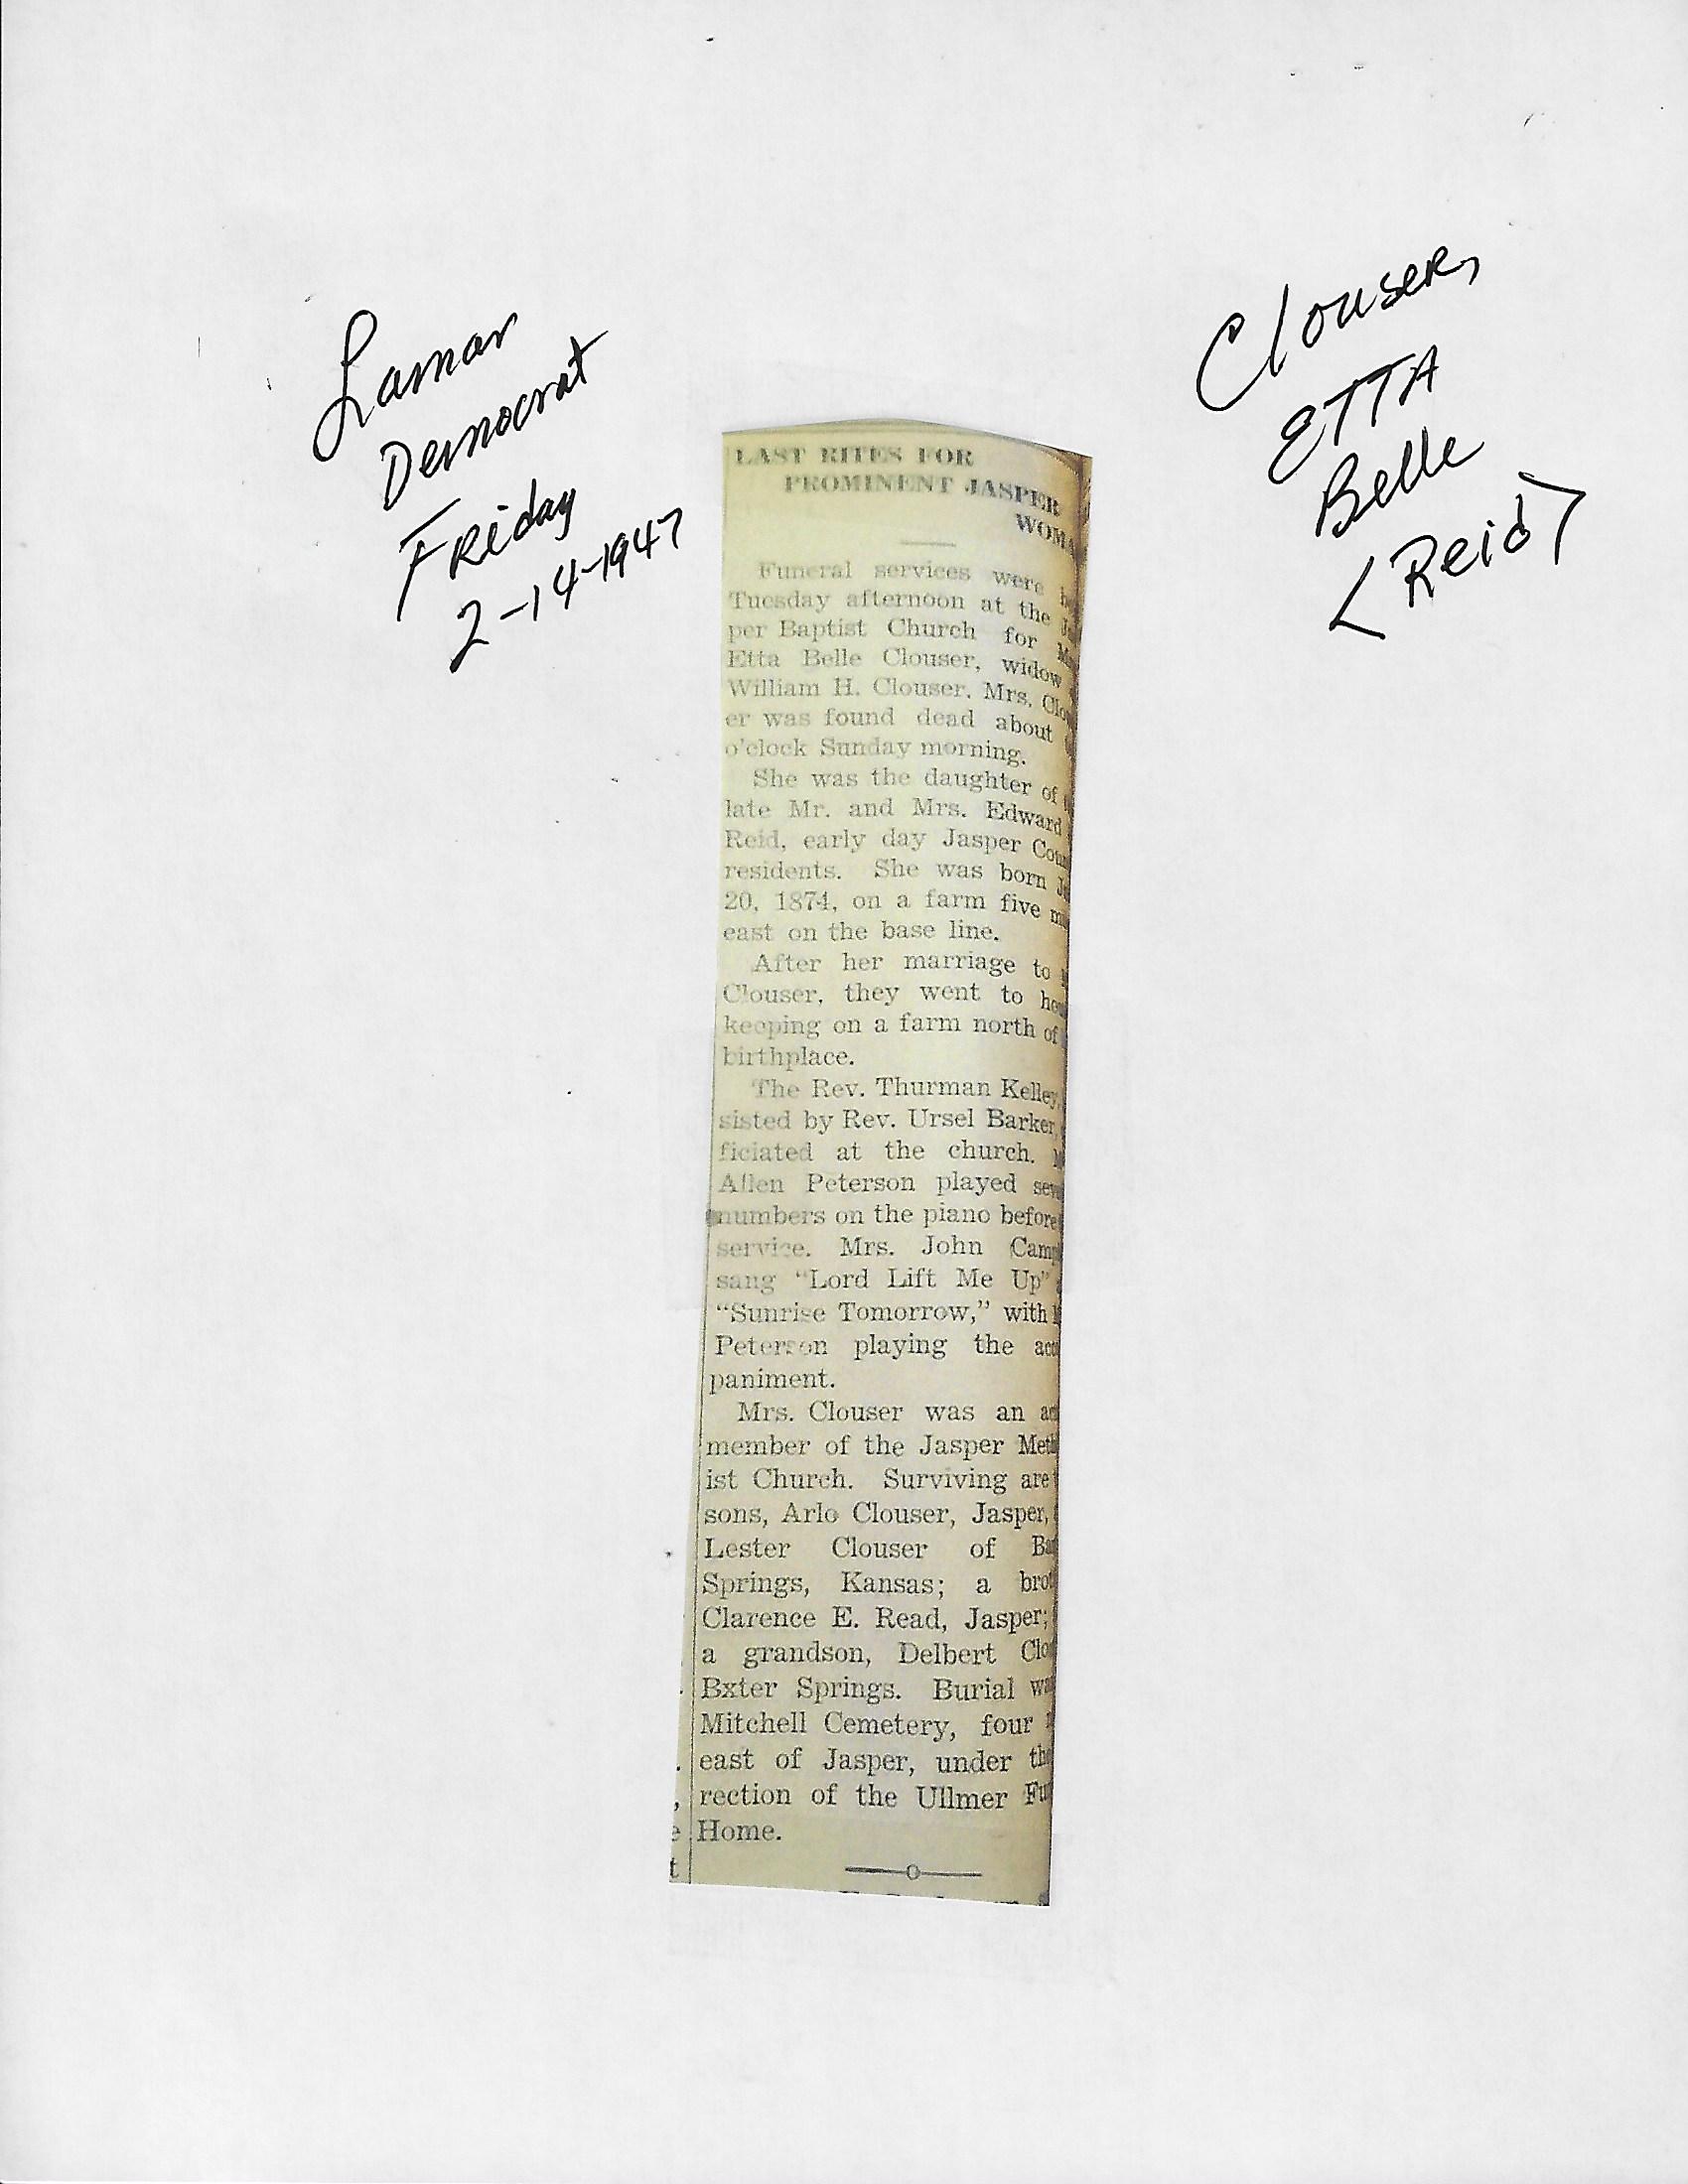 Lamar
Democrat
Friday
2-14-1947
Clouser,
ETTA
Belle
<Reid>
LAST RITES FOR
PROMINENT JASPER
WOMA
Funeral services were h
Tuesday afternoon at the J
per Baptist Church for M
Etta Belle Clouser, widow
William H. Clouser. Mrs. Clo
er was found dead about
o'clock Sunday morning.
She was the daughter of
late Mr. and Mrs. Edward
Reid, early day Jasper Cou
residents. She was born J
20, 1874, on a farm five m
east on the base line.
After her marriage to
Clouser, they went to ho
keeping on a farm north of
birthplace.
The Rev. Thurman Kelley,
sisted by Rev. Ursel Barker,
ficiated at the church. M
Allen Peterson played sev
numbers on the piano before
service. Mrs. John Camp
sang "Lord Lift Me Up"
"Sunrise Tomorrow," with
Peterson playing the acc
paniment.
Mrs. Clouser was an ac
member of the Jasper Meth
ist Church. Surviving are
sons, Arlo Clouser, Jasper,
Lester Clouser of Ba
Springs, Kansas; a brot
Clarence E. Read, Jasper;
a grandson, Delbert Clo
Bxter Springs. Burial wa
Mitchell Cemetery, four
east of Jasper, under the
rection of the Ullmer Fu
Home.